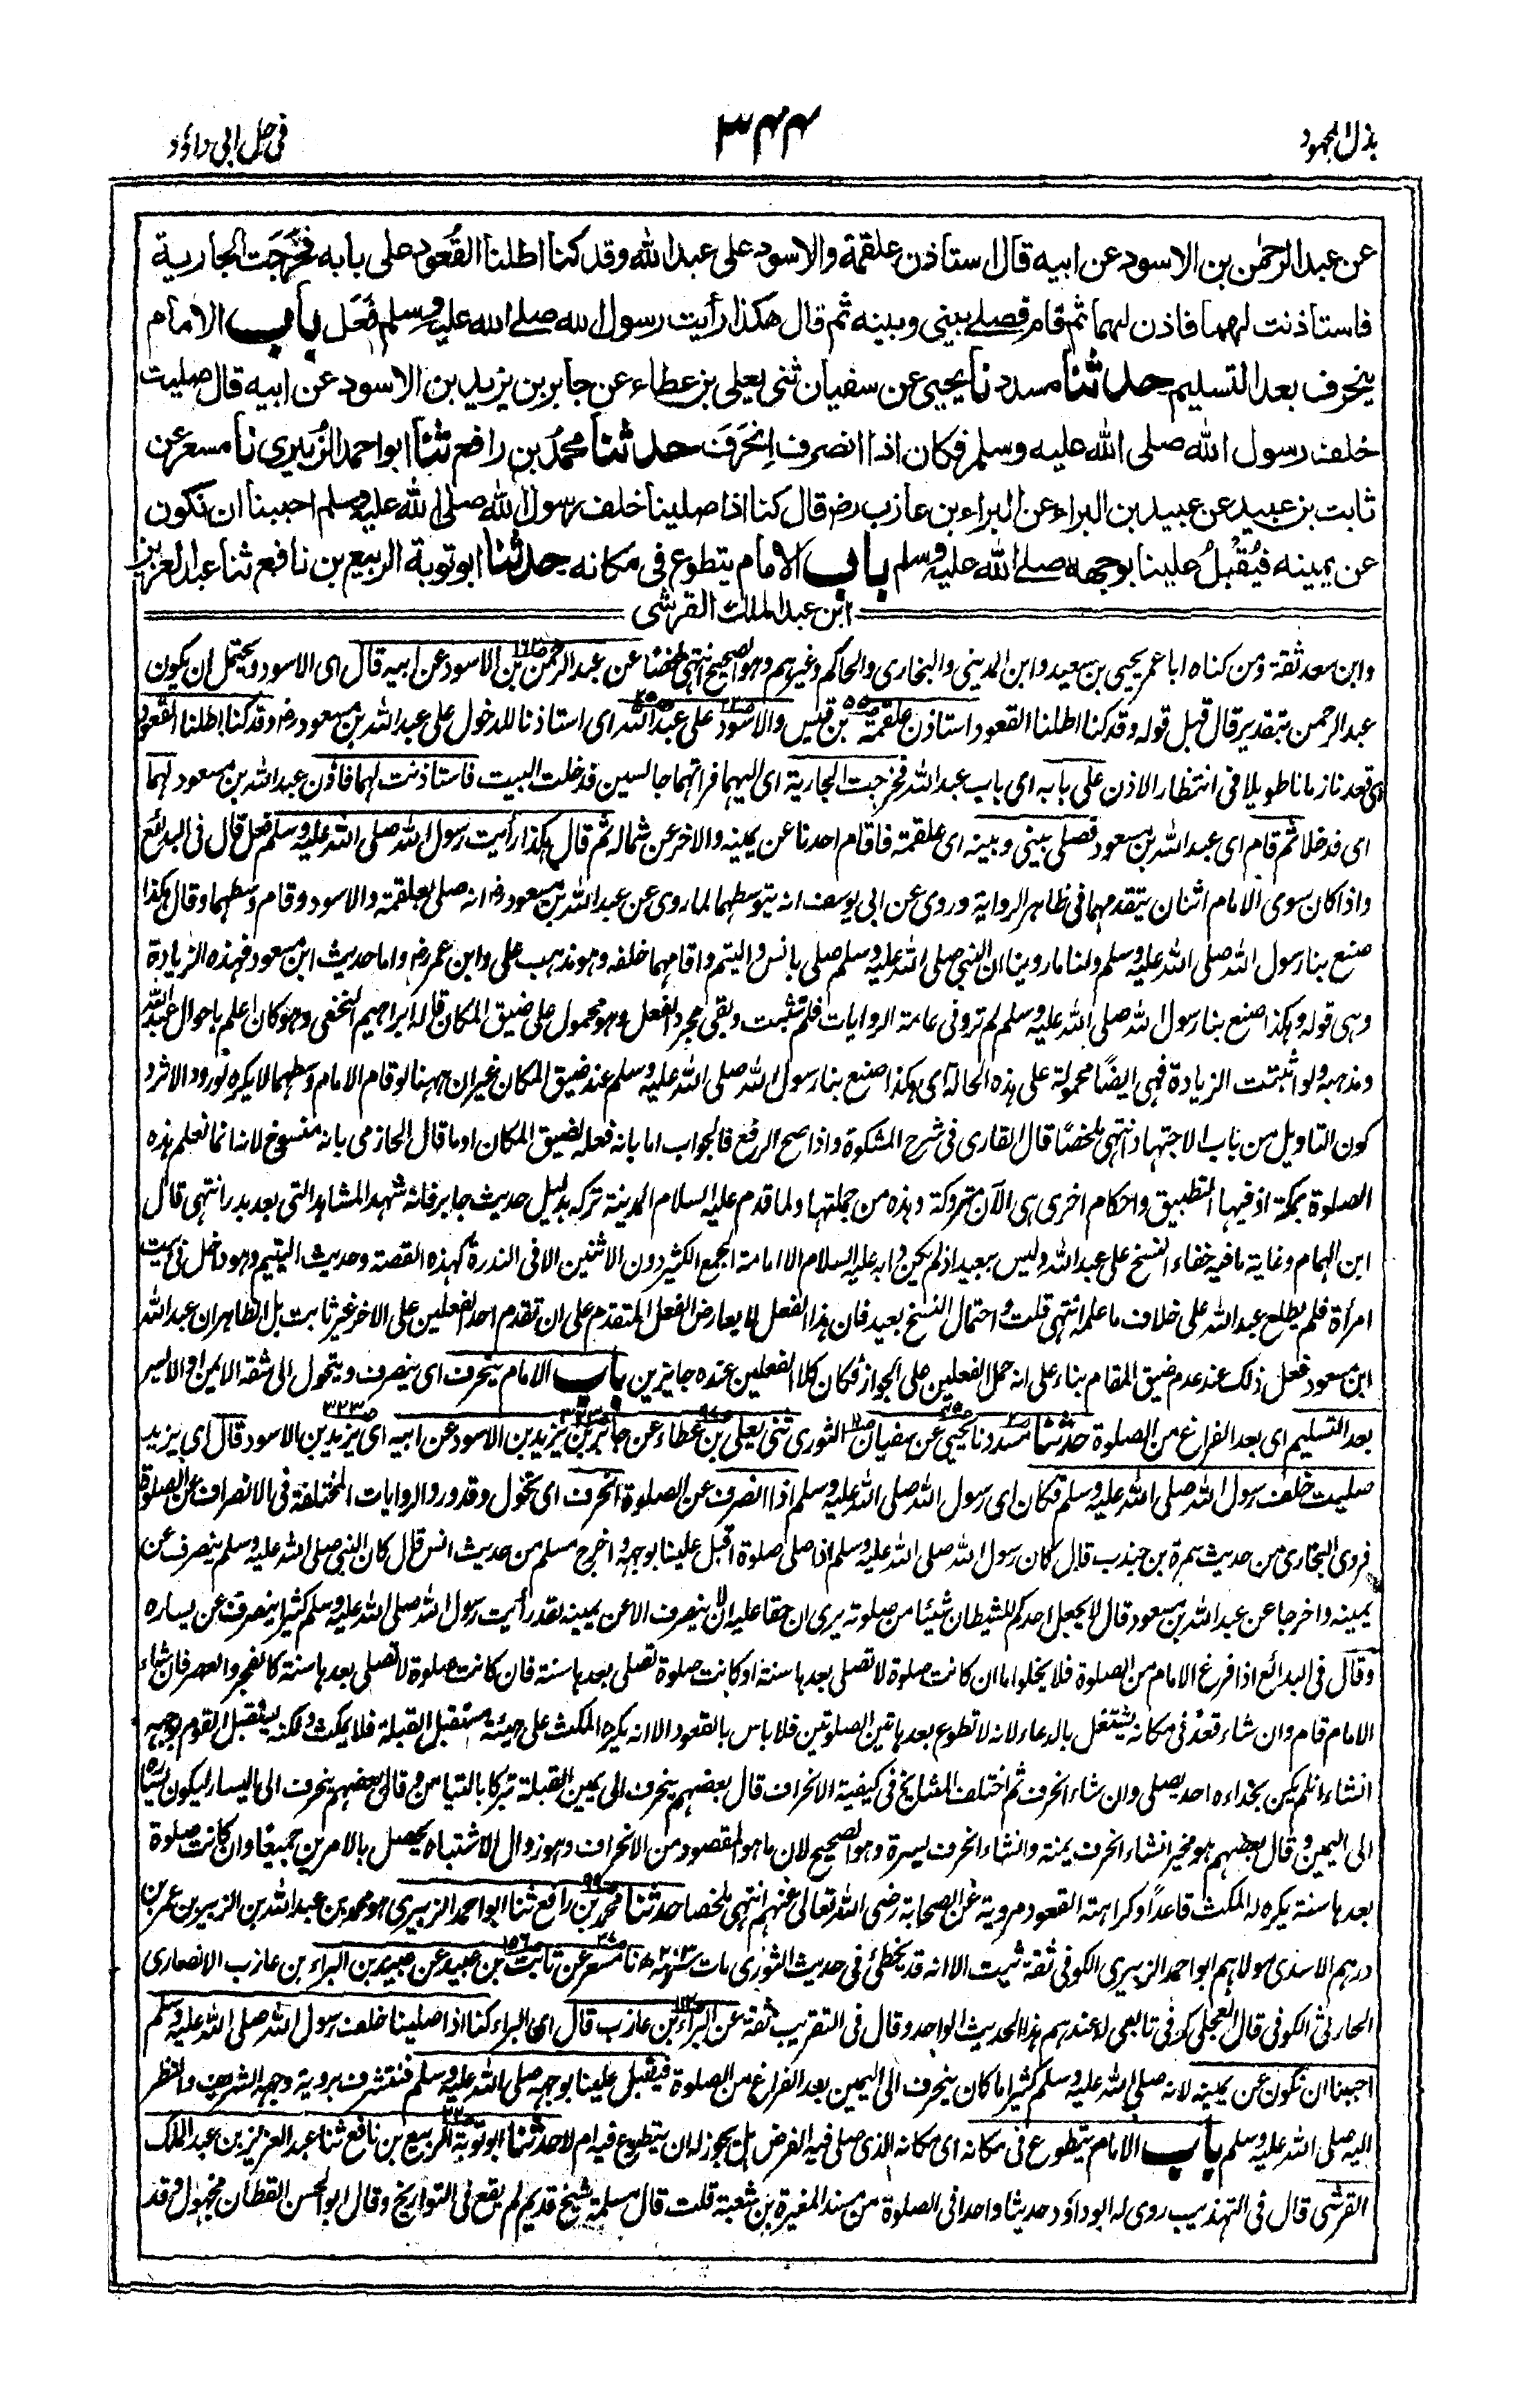 بذل المجهود
٣٤٤
في حل ابي داؤد
عن عبد الرحمٰن بن الاسود عن ابيه قال استاذن علقمة والاسود على عبد الله وقد كنا اطلنا القُعود على بابه فخَرَجَت الجارية
فاستاذنت لهما فاذن لهما ثم قام فصلے بيني وبينه ثم قال هكذا رأيت رسول الله صلے الله عليه وسلم فَعَل باب الامام
ينحرف بعد التسليم حدثنا مسدد نا يحيى عن سفيان ثنى يعلى بن عطاء عن جابر بن يزيد بن الاسود عن ابيه قال صليت
خلف رسول الله صلى الله عليه وسلم فكان اذا انصرف اِنحَرَفَ حدثنا محمدُ بن رافع ثنا ابو احمد الزُبيري نا مسعر عن
ثابت بن عبيد عن عبيد بن البراء عن البراء بن عازب رض قال كنا اذا صلينا خلف رسول الله صلى الله عليه وسلم احببنا ان نكون
عن يمينه فيُقْبِلُ علينا بوجهه صلے الله عليه وسلم باب الامام يتطوع في مكانه حدثنا ابو توبة الربيع بن نافع ثنا عبد العزيز
ابن عبد الملك القرشى
وابن سعد ثقة ومن كناه ابا عمر يحيى بن سعيد وابن المديني والبخارى والحاكم وغيرهم وهو الصحيح انتهى ملخصًا عن عبد الرحمن بن الاسود عن ابيه قال اى الاسود ويحتمل ان يكون
عبد الرحمن بتقدير قال قبل قوله وقد كنا اطلنا القعود استاذن علقمة بن قيس والاسود على عبد الله اى استاذنا للدخول على عبد الله بن مسعود رض وقد كنا اطلنا القعود
اى قعدنا زمانا طويلا فى انتظار الاذن على بابه اى باب عبد الله فخرجت الجارية اى اليهما فراتهما جالسين فدخلت البيت فاستاذنت لهما فاذن عبد الله بن مسعود لهما
اى فدخلا ثم قام اى عبد الله بن مسعود فصلى بينى وبينه اى علقمة فاقام احدنا عن يمينه والاخر عن شماله ثم قال هكذا رأيت رسول الله صلى الله عليه وسلم فعل قال فى البدائع
واذا كان سوى الامام اثنان يتقدمهما فى ظاهر الرواية وروى عن ابى يوسف انه يتوسطهما لما روى عن عبد الله بن مسعود رض انه صلى بعلقمة والاسود وقام وسطهما وقال هكذا
صنع بنا رسول الله صلى الله عليه وسلم ولنا ما روينا ان النبى صلى الله عليه وسلم صلى بانس واليتيم واقامهما خلفه وهو مذهب على وابن عمر رض واما حديث ابن مسعود فهذه الزيادة
وهى قوله وهكذا صنع بنا رسول الله صلى الله عليه وسلم لم ترو فى عامة الروايات فلم تثبت وبقى مجرد الفعل وهو محمول على ضيق المكان قاله ابراهيم النخعى وهو كان اعلم باحوال عبد الله
ومذهبه ولو اثبتت الزيادة فهى ايضًا محمولة على هذه الحالة اى هكذا صنع بنا رسول الله صلى الله عليه وسلم عند ضيق المكان غير ان ههنا لو قام الامام وسطهما لا يكره لورود الاثر و
كون التاويل من باب الاجتهاد انتهى ملخصًا قال القارى فى شرح المشكوة واذا صح الرفع فالجواب اما بانه فعله لضيق المكان او ما قال الحازمى بانه منسوخ لانه انما تعلم هذه
الصلوة بمكة اذ فيها التطبيق واحكام اخرى هى الآن متروكة وهذه من جملتها ولما قدم عليه السلام المدينة تركه بدليل حديث جابر فانه شهد المشاهد التى بعد بدر انتهى قال
ابن الهمام وغاية ما فيه خفاء النسخ على عبد الله وليس ببعيد اذ لم يكن دابه عليه السلام الا امامة الجمع الكثير دون الاثنين الا فى الندرة كهذه القصة وحديث اليتيم وهو داخل فى بيت
امرأة فلم يطلع عبد الله على خلاف ما علمه انتهى قلت واحتمال النسخ بعيد فان هذا الفعل لا يعارض الفعل المتقدم على ان تقدم احد الفعلين على الاخر غير ثابت بل الظاهر ان عبد الله
ابن مسعود فعل ذلك عند عدم ضيق المقام بناء على انه حمل الفعلين على الجواز فكان كلا الفعلين عنده جائزين باب الامام ينحرف اى ينصرف ويتحول الى شقه الايمن او الايسر
بعد التسليم اى بعد الفراغ من الصلوة حدثنا مسدد نا يحيى عن سفيان الثورى ثنى يعلى بن عطاء عن جابر بن يزيد بن الاسود عن ابيه اى يزيد بن الاسود قال اى يزيد
صليت خلف رسول الله صلى الله عليه وسلم فكان اى رسول الله صلى الله عليه وسلم اذا انصرف عن الصلوة انحرف اى تحول وقد ورد الروايات المختلفة فى الانصراف عن الصلوة
فروى البخارى من حديث سمرة بن جندب قال كان رسول الله صلى الله عليه وسلم اذا صلى صلوة اقبل علينا بوجهه واخرج مسلم من حديث انس قال كان النبى صلى الله عليه وسلم ينصرف عن
يمينه واخرجا عن عبد الله بن مسعود قال لا يجعل احدكم للشيطان شيئا من صلوته يرى ان حقا عليه ان لا ينصرف الا عن يمينه لقد رأيت رسول الله صلى الله عليه وسلم كثيرا ينصرف عن يساره
وقال فى البدائع اذا فرغ الامام من الصلوة فلا يخلو اما ان كانت صلوة لا تصلى بعدها سنة او كانت صلوة تصلى بعدها سنة فان كانت صلوة لا تصلى بعدها سنة كالفجر والعصر فان شاء
الامام قام وان شاء قعد فى مكانه يشتغل بالدعاء لانه لا تطوع بعد هاتين الصلوتين فلا باس بالقعود الا انه يكره المكث على هيئة مستقبل القبلة فلا يمكث ولكنه يستقبل القوم بوجهه
انشاء ان لم يكن بحذاءه احد يصلى وان شاء انحرف ثم اختلف المشايخ فى كيفية الانحراف قال بعضهم ينحرف الى يمين القبلة تبركا بالتيامن وقال بعضهم ينحرف الى اليسار ليكون يساره
الى اليمين وقال بعضهم هو مخير انشاء انحرف يمنة وانشاء انحرف يسرة وهو الصحيح لان ما هو المقصود من الانحراف وهو زوال الاشتباه يحصل بالامرين جميعًا وان كانت صلوة
بعدها سنة يكره له المكث قاعداً وكراهة القعود مروية عن الصحابة رضى الله تعالى عنهم انتهى ملخصا حدثنا محمد بن رافع ثنا ابو احمد الزبيرى هو محمد بن عبد الله بن الزبير بن عمر بن
درهم الاسدى مولاهم ابو احمد الزبيرى الكوفى ثقة ثبت الا انه قد يخطئ فى حديث الثورى مات سنة ٢٠٣ نا مسعر عن ثابت بن عبيد عن عبيد بن البراء بن عازب الانصارى
الحارثى الكوفى قال العجلى كوفى تابعى له عندهم هذا الحديث الواحد وقال فى التقريب ثقة عن البراء بن عازب قال اى البراء كنا اذا صلينا خلف رسول الله صلى الله عليه وسلم
احببنا ان نكون عن يمينه لانه صلى الله عليه وسلم كثيرا ما كان ينحرف الى اليمين بعد الفراغ من الصلوة فيقبل علينا بوجهه صلى الله عليه وسلم فنتشرف بروية وجهه الشريف والنظر
اليه صلى الله عليه وسلم باب الامام يتطوع فى مكانه اى مكانه الذى صلى فيه الفرض هل يجوز له ان يتطوع فيه ام لا حدثنا ابو توبة الربيع بن نافع ثنا عبد العزيز بن عبد الملك
القرشى قال فى التهذيب روى له ابو داؤد حديثا واحدا فى الصلوة من مسند المغيرة بن شعبة قلت قال مسلمة شيخ قديم لم يقع فى التواريخ وقال ابو الحسن القطان مجهول وقد